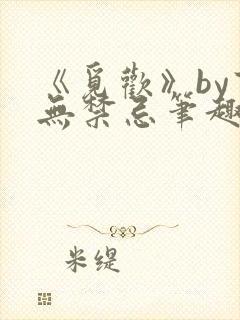 《覓歡》by
無禁忌筆趣
米缇